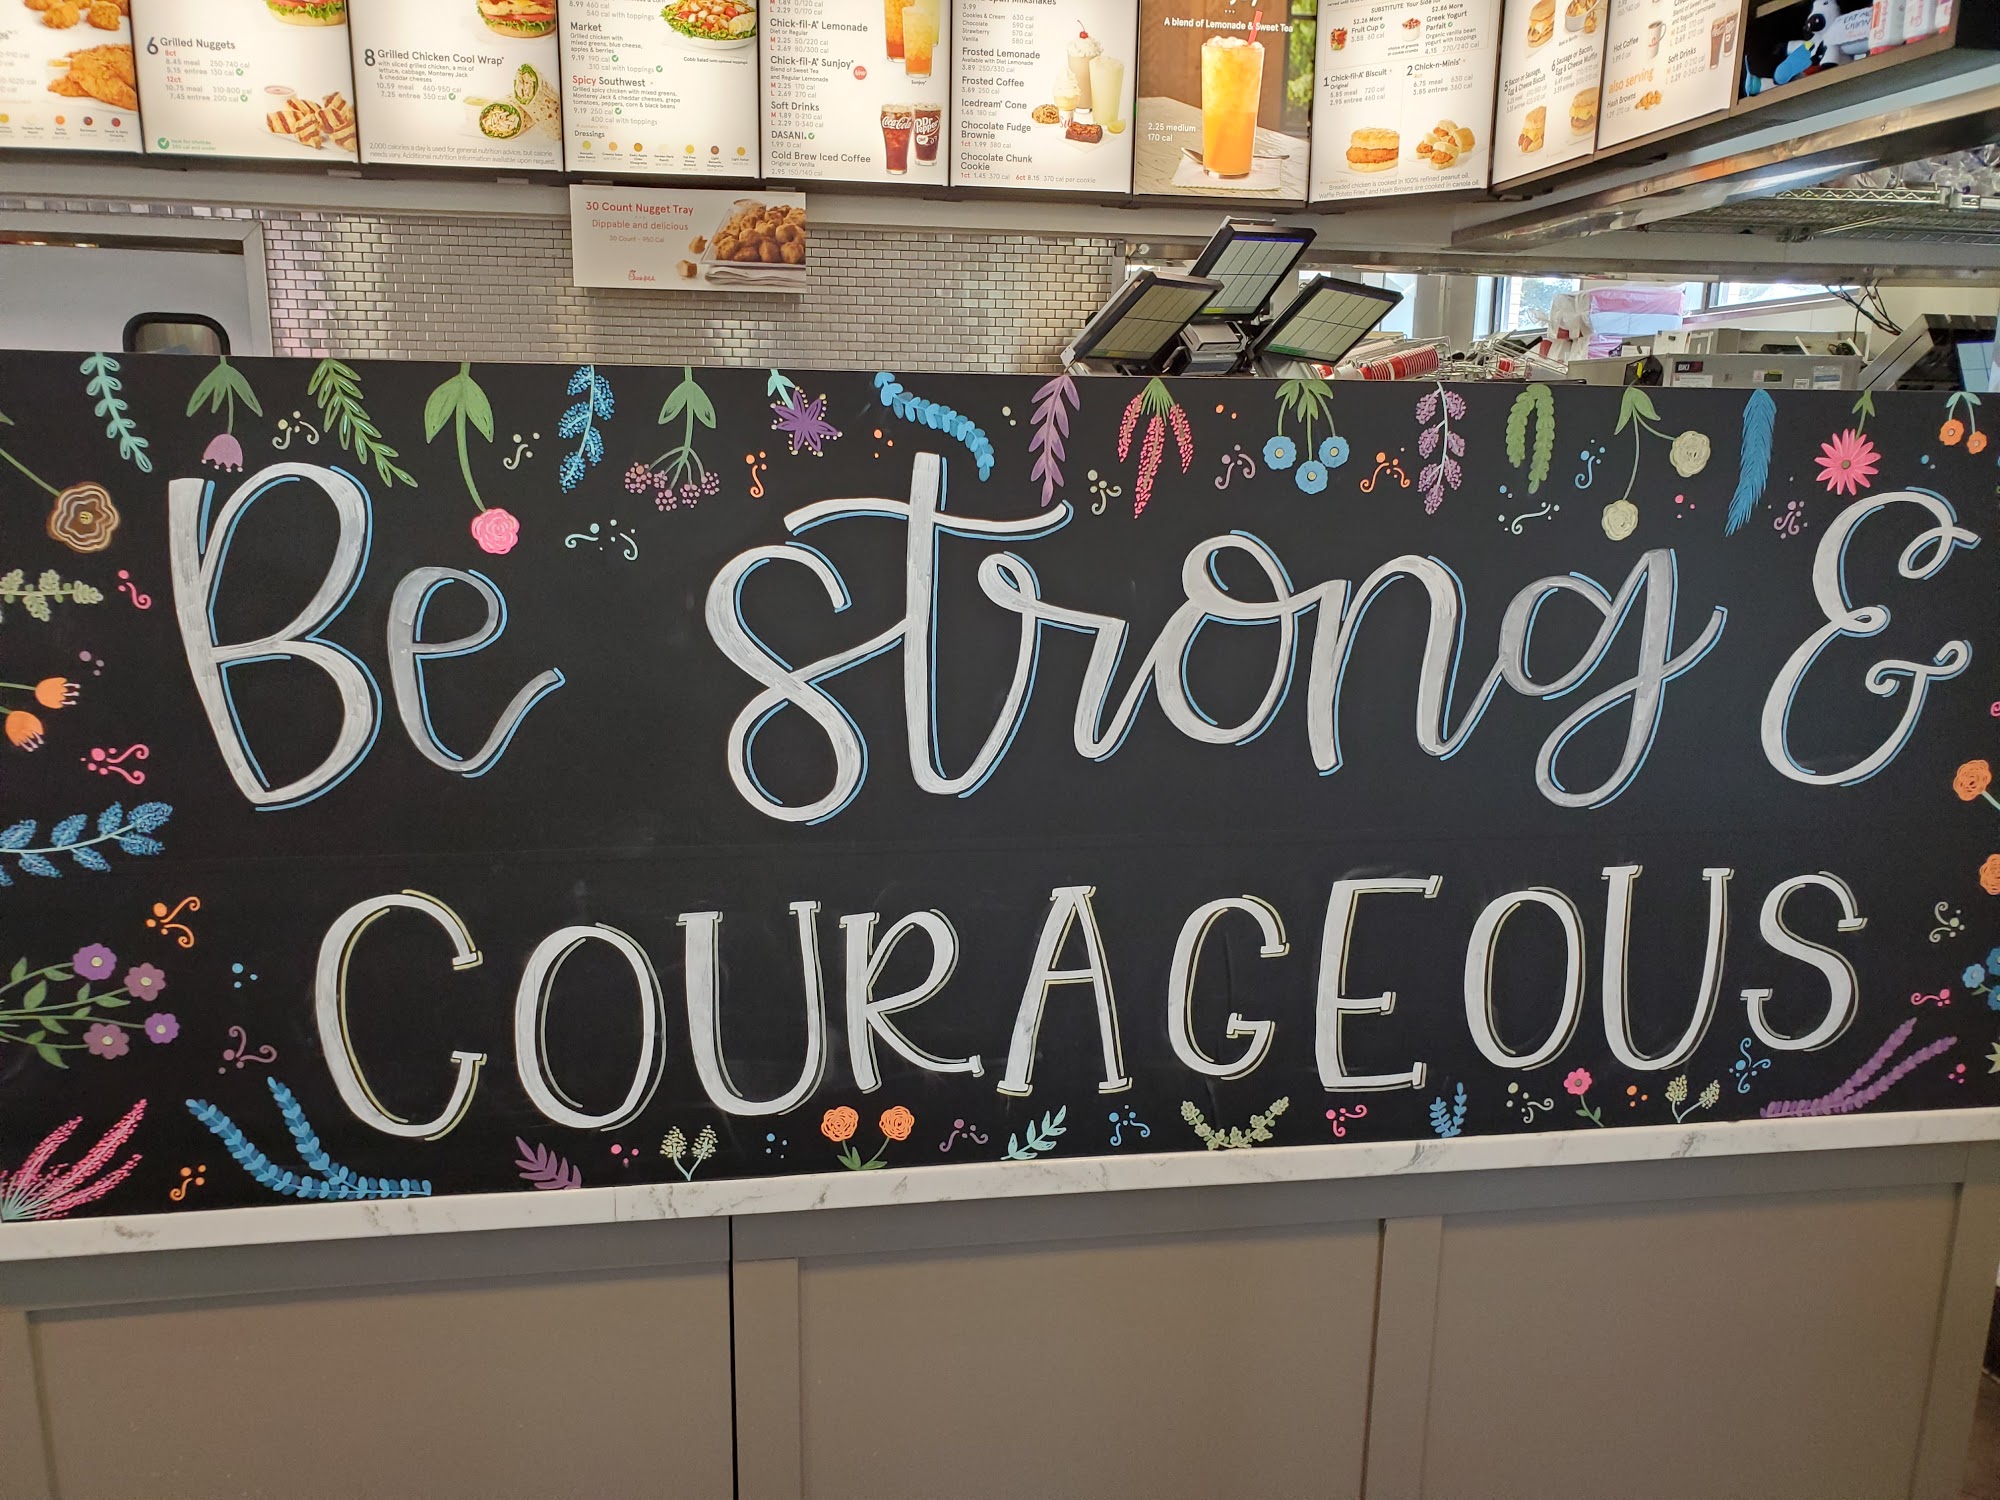 6 Grilled Nuggets
8ct
8.45 meal 250-740 cal
5.15 entree 130 cal
12ct
10.75 meal 310-800 cal
7.45 entree 200 cal
8 Grilled Chicken Cool Wrap®
with sliced grilled chicken, a mix of
lettuce, cabbage, Monterey Jack
& cheddar cheeses
10.59 meal 460-950 cal
7.25 entree 350 cal
2,000 calories a day is used for general nutrition advice, but calorie
needs vary. Additional nutrition information available upon request.
8.99 460 cal
540 cal with toppings
Market
Grilled chicken with
mixed greens, blue cheese,
apples & berries
9.19 190 cal
310 cal with toppings
Spicy Southwest
Grilled spicy chicken with mixed greens,
Monterey Jack & cheddar cheeses, grape
tomatoes, peppers, corn & black beans
9.19 250 cal
400 cal with toppings
Dressings
Cobb Salad with optional toppings
M 1.89 0/120 cal
L 2.29 0/170 cal
Chick-fil-A® Lemonade
Diet or Regular
M 2.25 50/220 cal
L 2.69 80/300 cal
Chick-fil-A® Sunjoy®
Blend of Sweet Tea
and Regular Lemonade
M 2.25 170 cal
L 2.69 270 cal
Soft Drinks
M 1.89 0-210 cal
L 2.29 0-340 cal
DASANI®
1.99 0 cal
Cold Brew Iced Coffee
Original or Vanilla
2.95 150/140 cal
Sunjoy®
Coca-Cola
Dr Pepper
Milkshakes
3.99
Cookies & Cream 630 cal
Chocolate 590 cal
Strawberry 570 cal
Vanilla 580 cal
Frosted Lemonade
Available with Diet Lemonade
3.89 250/330 cal
Frosted Coffee
3.89 250 cal
Icedream® Cone
1.65 180 cal
Chocolate Fudge
Brownie
1ct 1.99 380 cal
Chocolate Chunk
Cookie
1ct 1.45 370 cal 6ct 8.15 370 cal per cookie
A blend of Lemonade & Sweet Tea
2.25 medium
170 cal
SUBSTITUTE Your Side for
$2.26 More
Fruit Cup
3.58 60 cal
$2.86 More
Greek Yogurt
Parfait
Organic vanilla bean
yogurt with toppings
4.15 270/240 cal
1 Chick-fil-A® Biscuit
Original
5.85 meal 720 cal
2.95 entree 460 cal
2 Chick-n-Minis®
4ct
6.75 meal 630 cal
3.85 entree 360 cal
Breaded chicken is cooked in 100% refined peanut oil.
Waffle Potato Fries® and Hash Browns are cooked in canola oil.
5 Bacon or Sausage,
Egg & Cheese Biscuit
6 Sausage or Bacon,
Egg & Cheese Muffin
Hot Coffee
also serving
Hash Browns
Soft Drinks
30 Count Nugget Tray
Dippable and delicious
30 Count - 950 Cal
Chick-fil-A
BKI
Be strong &
COURAGEOUS